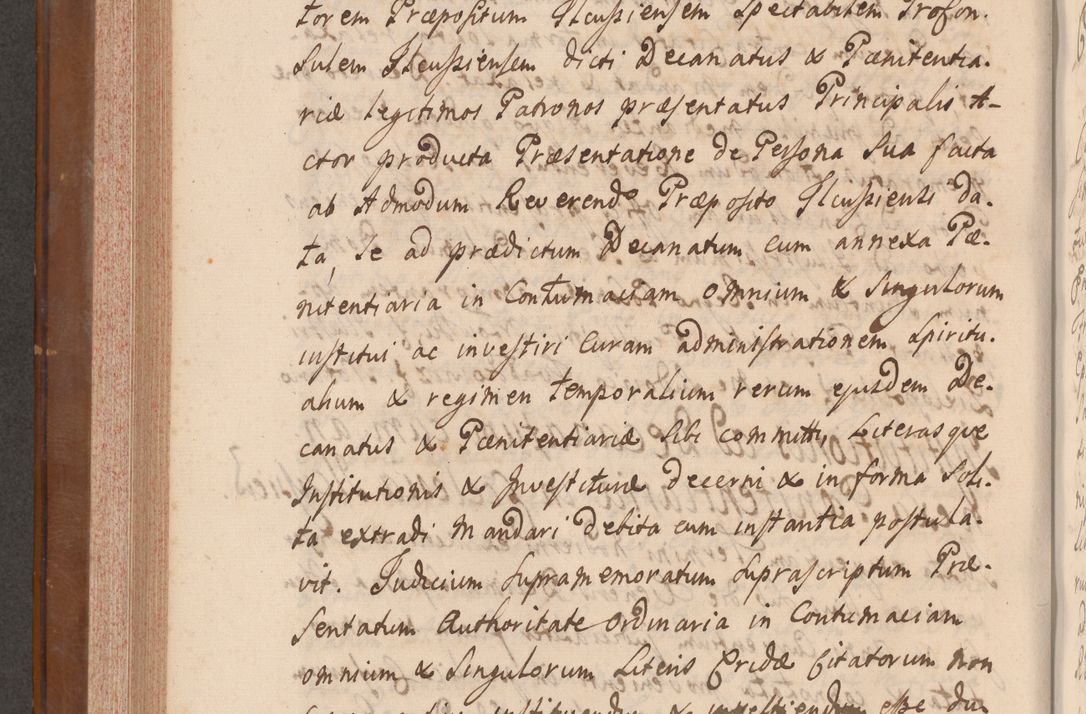 torem Præpositum Ilcussiensem Spectabilem Profon.
Sulem Ilcussiensem dicti Decanatus & Pænitentia.
riæ legitimos Patronos præsentatus Principalis A-
ctor producta Præsentatione de Persona Sua facta
ab Admodum Reverendo Præposito Ilcussiensi da.
ta, Se ad prædictum Decanatum cum annexa Pæ.
nitentiaria in Contumaciam omnium & Singulorum
institui ac investiri Curam administrationem Spiritu.
alium & regimen temporalium rerum ejusdem De.
canatus & Pænitentiariæ Sibi committi, Literasque
Institutionis & Investituræ decerni & in forma Soli.
ta extradi Mandari debita cum instantia postula.
vit. Judicium Supramemoratum Suprascriptum Præ.
Sentatum Authoritate Ordinaria in Contumaciam
omnium & Singulorum Literis Cridæ Citatorum non
instituendum & investiendum esse du